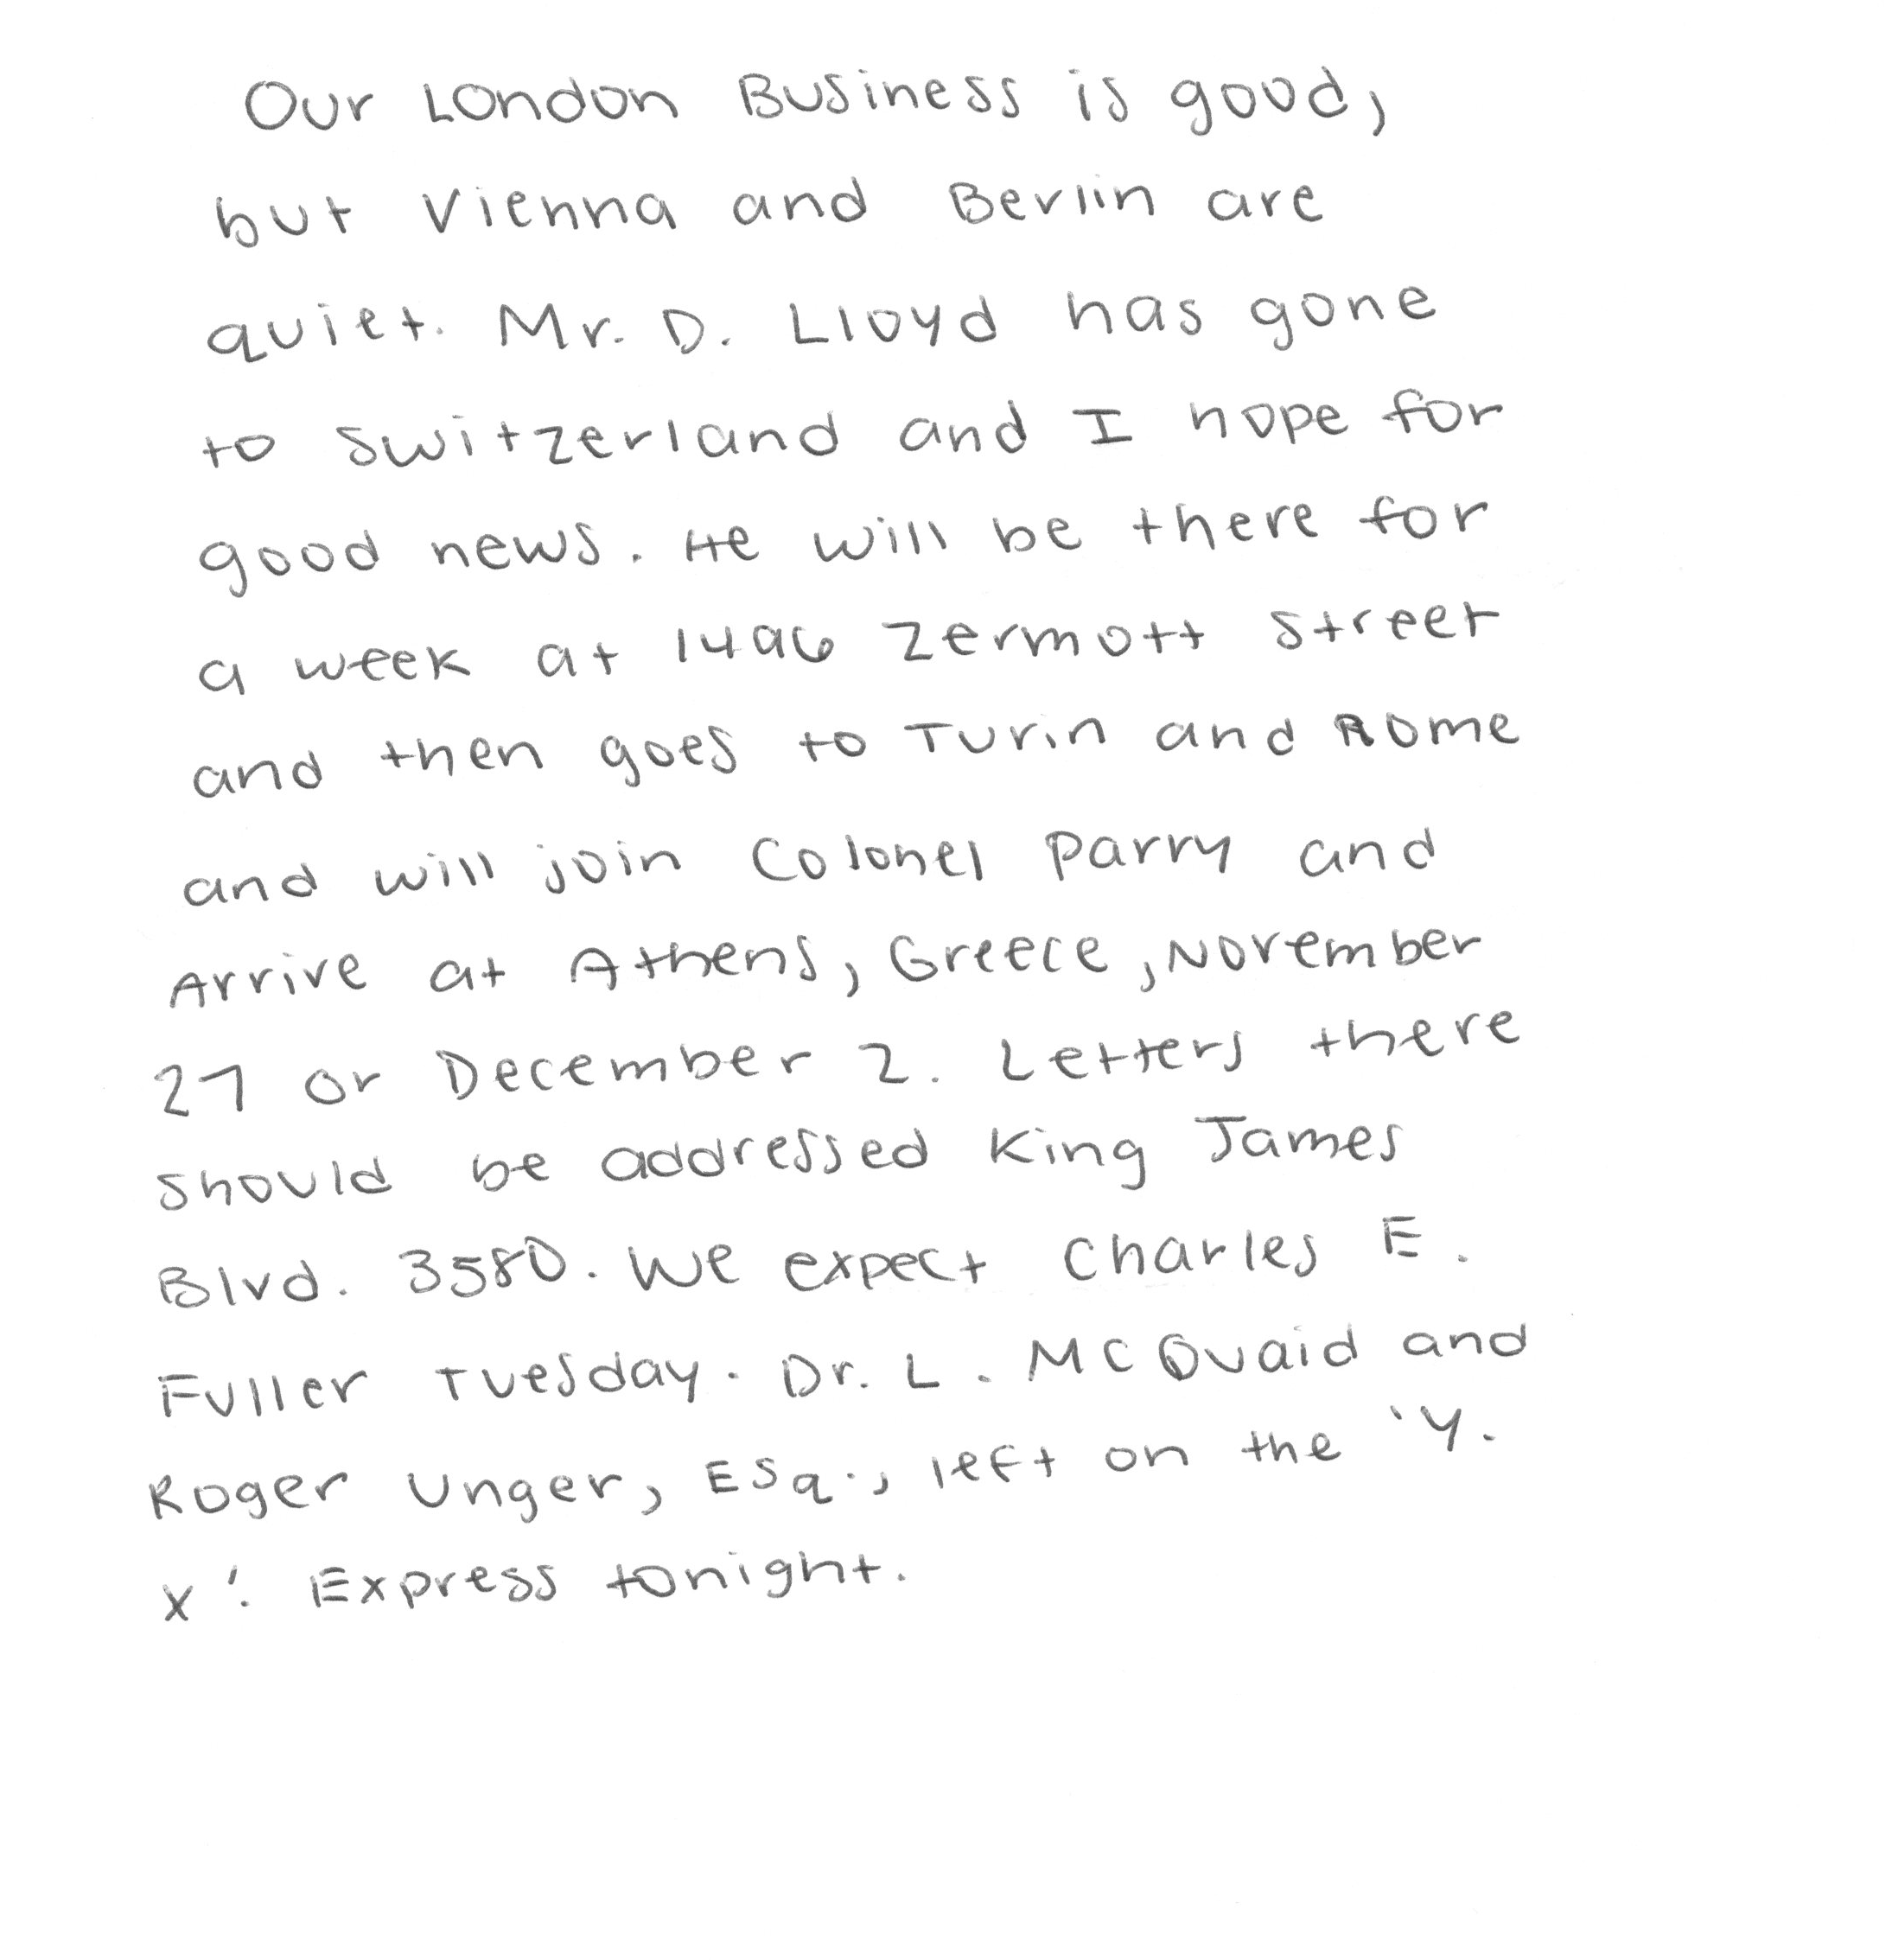 Our London Business is good,
but Vienna and Berlin are
quiet. Mr. D. Lloyd has gone
to Switzerland and I hope for
good news. He will be there for
a week at 1496 Zermott Street
and then goes to Turin and Rome
and will join Colonel Parry and
Arrive at Athens, Greece, November
27 or December 2. Letters there
should be addressed King James
Blvd. 3580. We expect Charles E.
Fuller Tuesday. Dr. L. McQuaid and
Roger Unger, Esq., left on the 'Y.
X.' Express tonight.